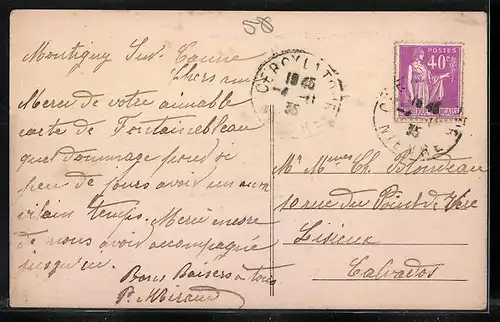 58
Montigny Sur Canne
Chers
Merci de votre aimable
carte de Fontainebleau
quel dommage pour si
peu de jours avoir un aussi
vilain temps. Merci encore
de nous avoir accompagné
jusqu'en
Bons Baisers à tous
P. Miraud
CERCY LA TOUR
18 45
4
35
NIEVRE
POSTES
40c
18 45
35
NIEVRE
Mr Mmes Ch. Blondeau
10 rue du Point de Vue
Lisieux
Calvados